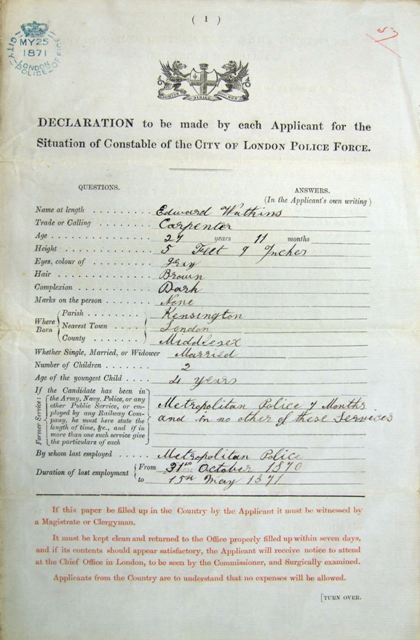 ( 1 )
CITY OF LONDON
MY 25
1871
POLICE OFFICE
DECLARATION to be made by each Applicant for the
Situation of Constable of the CITY OF LONDON POLICE FORCE.
QUESTIONS.
ANSWERS.
(In the Applicant's own writing)
Name at length Edward Watkins
Trade or Calling Carpenter
Age years 11 months
Height 5 Feet 9 Inches
Eyes, colour of Grey
Hair Brown
Complexion Dark
Marks on the person None
Where Born
Parish Kensington
Nearest Town London
County Middlesex
Whether Single, Married, or Widower Married
Number of Children 2
Age of the youngest Child 4 years
Former Service:
If the Candidate has been in
the Army, Navy, Police, or any
other Public Service, or em-
ployed by any Railway Com-
pany, he must here state the
length of time, &c., and if in
more than one such service give
the particulars of each
Metropolitan Police 7 Months
and in no other of these Services
By whom last employed Metropolitan Police
Duration of last employment
From 31st October 1870
to 15th May 1871
If this paper be filled up in the Country by the Applicant it must be witnessed by
a Magistrate or Clergyman.
It must be kept clean and returned to the Office properly filled up within seven days,
and if its contents should appear satisfactory, the Applicant will receive notice to attend
at the Chief Office in London, to be seen by the Commissioner, and Surgically examined.
Applicants from the Country are to understand that no expenses will be allowed.
[TURN OVER.